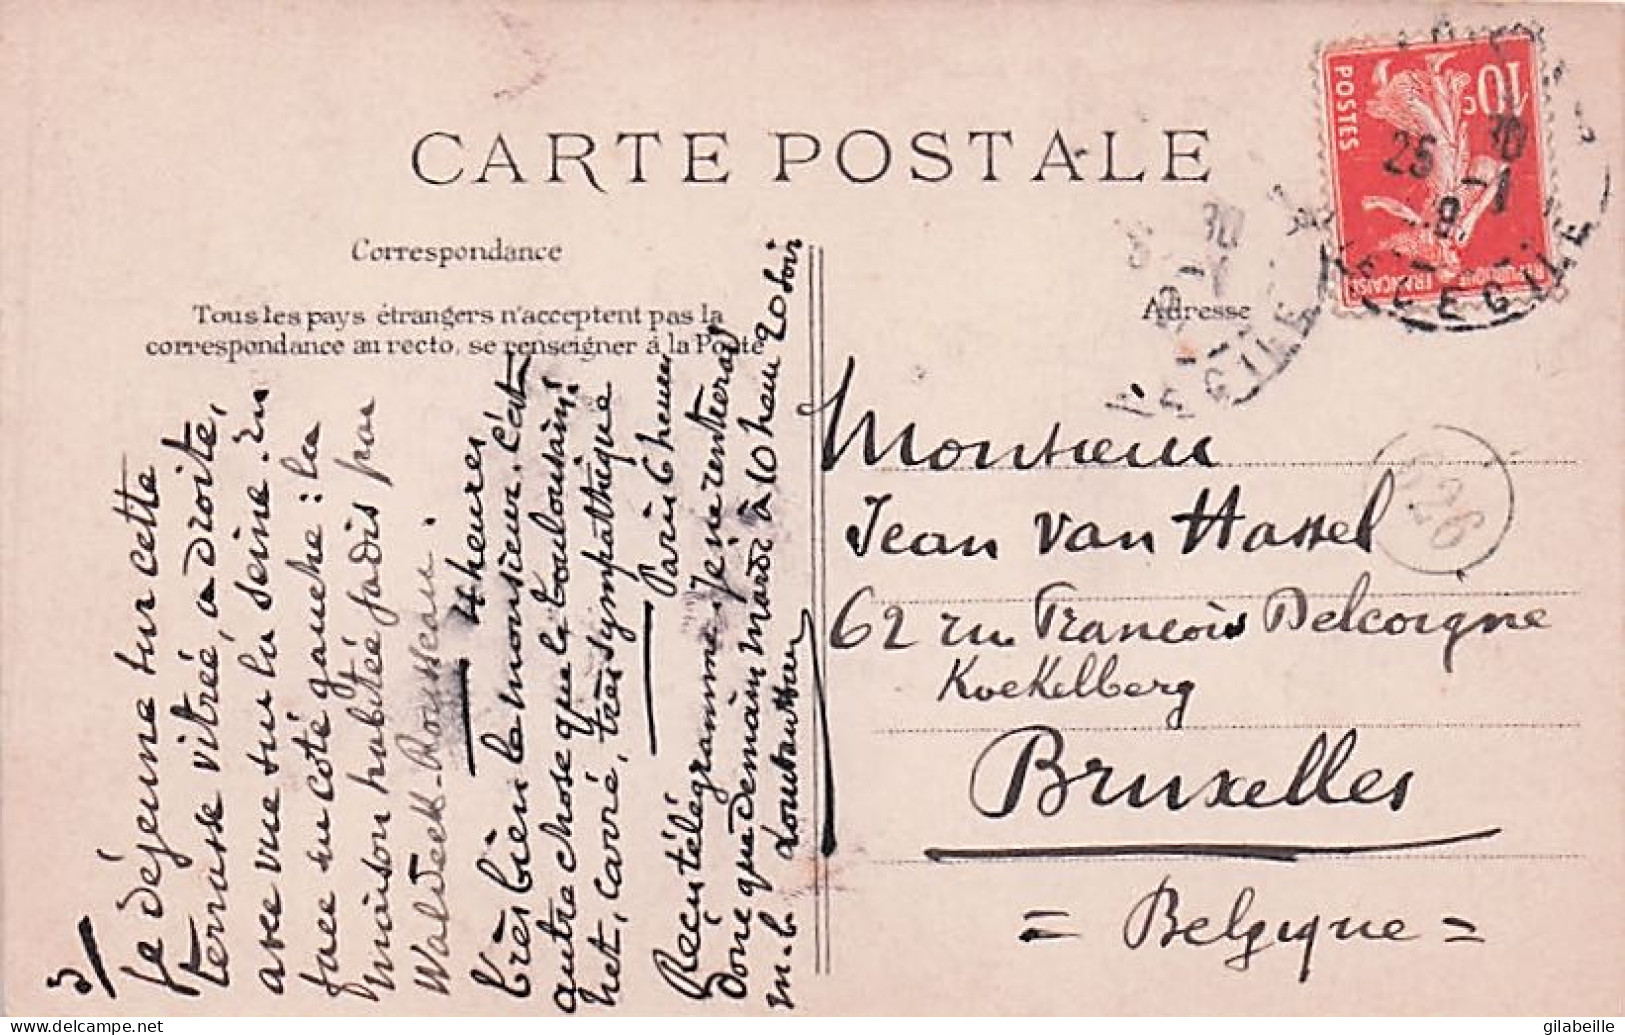 CARTE POSTALE
Correspondance
Tous les pays étrangers n'acceptent pas la
correspondance au recto, se renseigner à la Poste
Adresse
10c
POSTES
REPUBLIQUE FRANÇAISE
3/
Je déjeune sur cette
terrasse vitrée, à droite,
avec vue sur la Seine. En
face au coté gauche : la
maison habitée jadis par
Waldeck-Rousseau.
4 heures
très bien le monsieur, c'est
autre chose que le toulousain!
net, carré, très sympathique
Paris 6 heures
Reçu télégramme. Je ne rentrerai
donc que demain mardi à 10 heures 20 soir
m. b.
Monsieur
Jean Van Hassel
62 rue François Delcoigne
Koekelberg
Bruxelles
= Belgique =
gilabeille